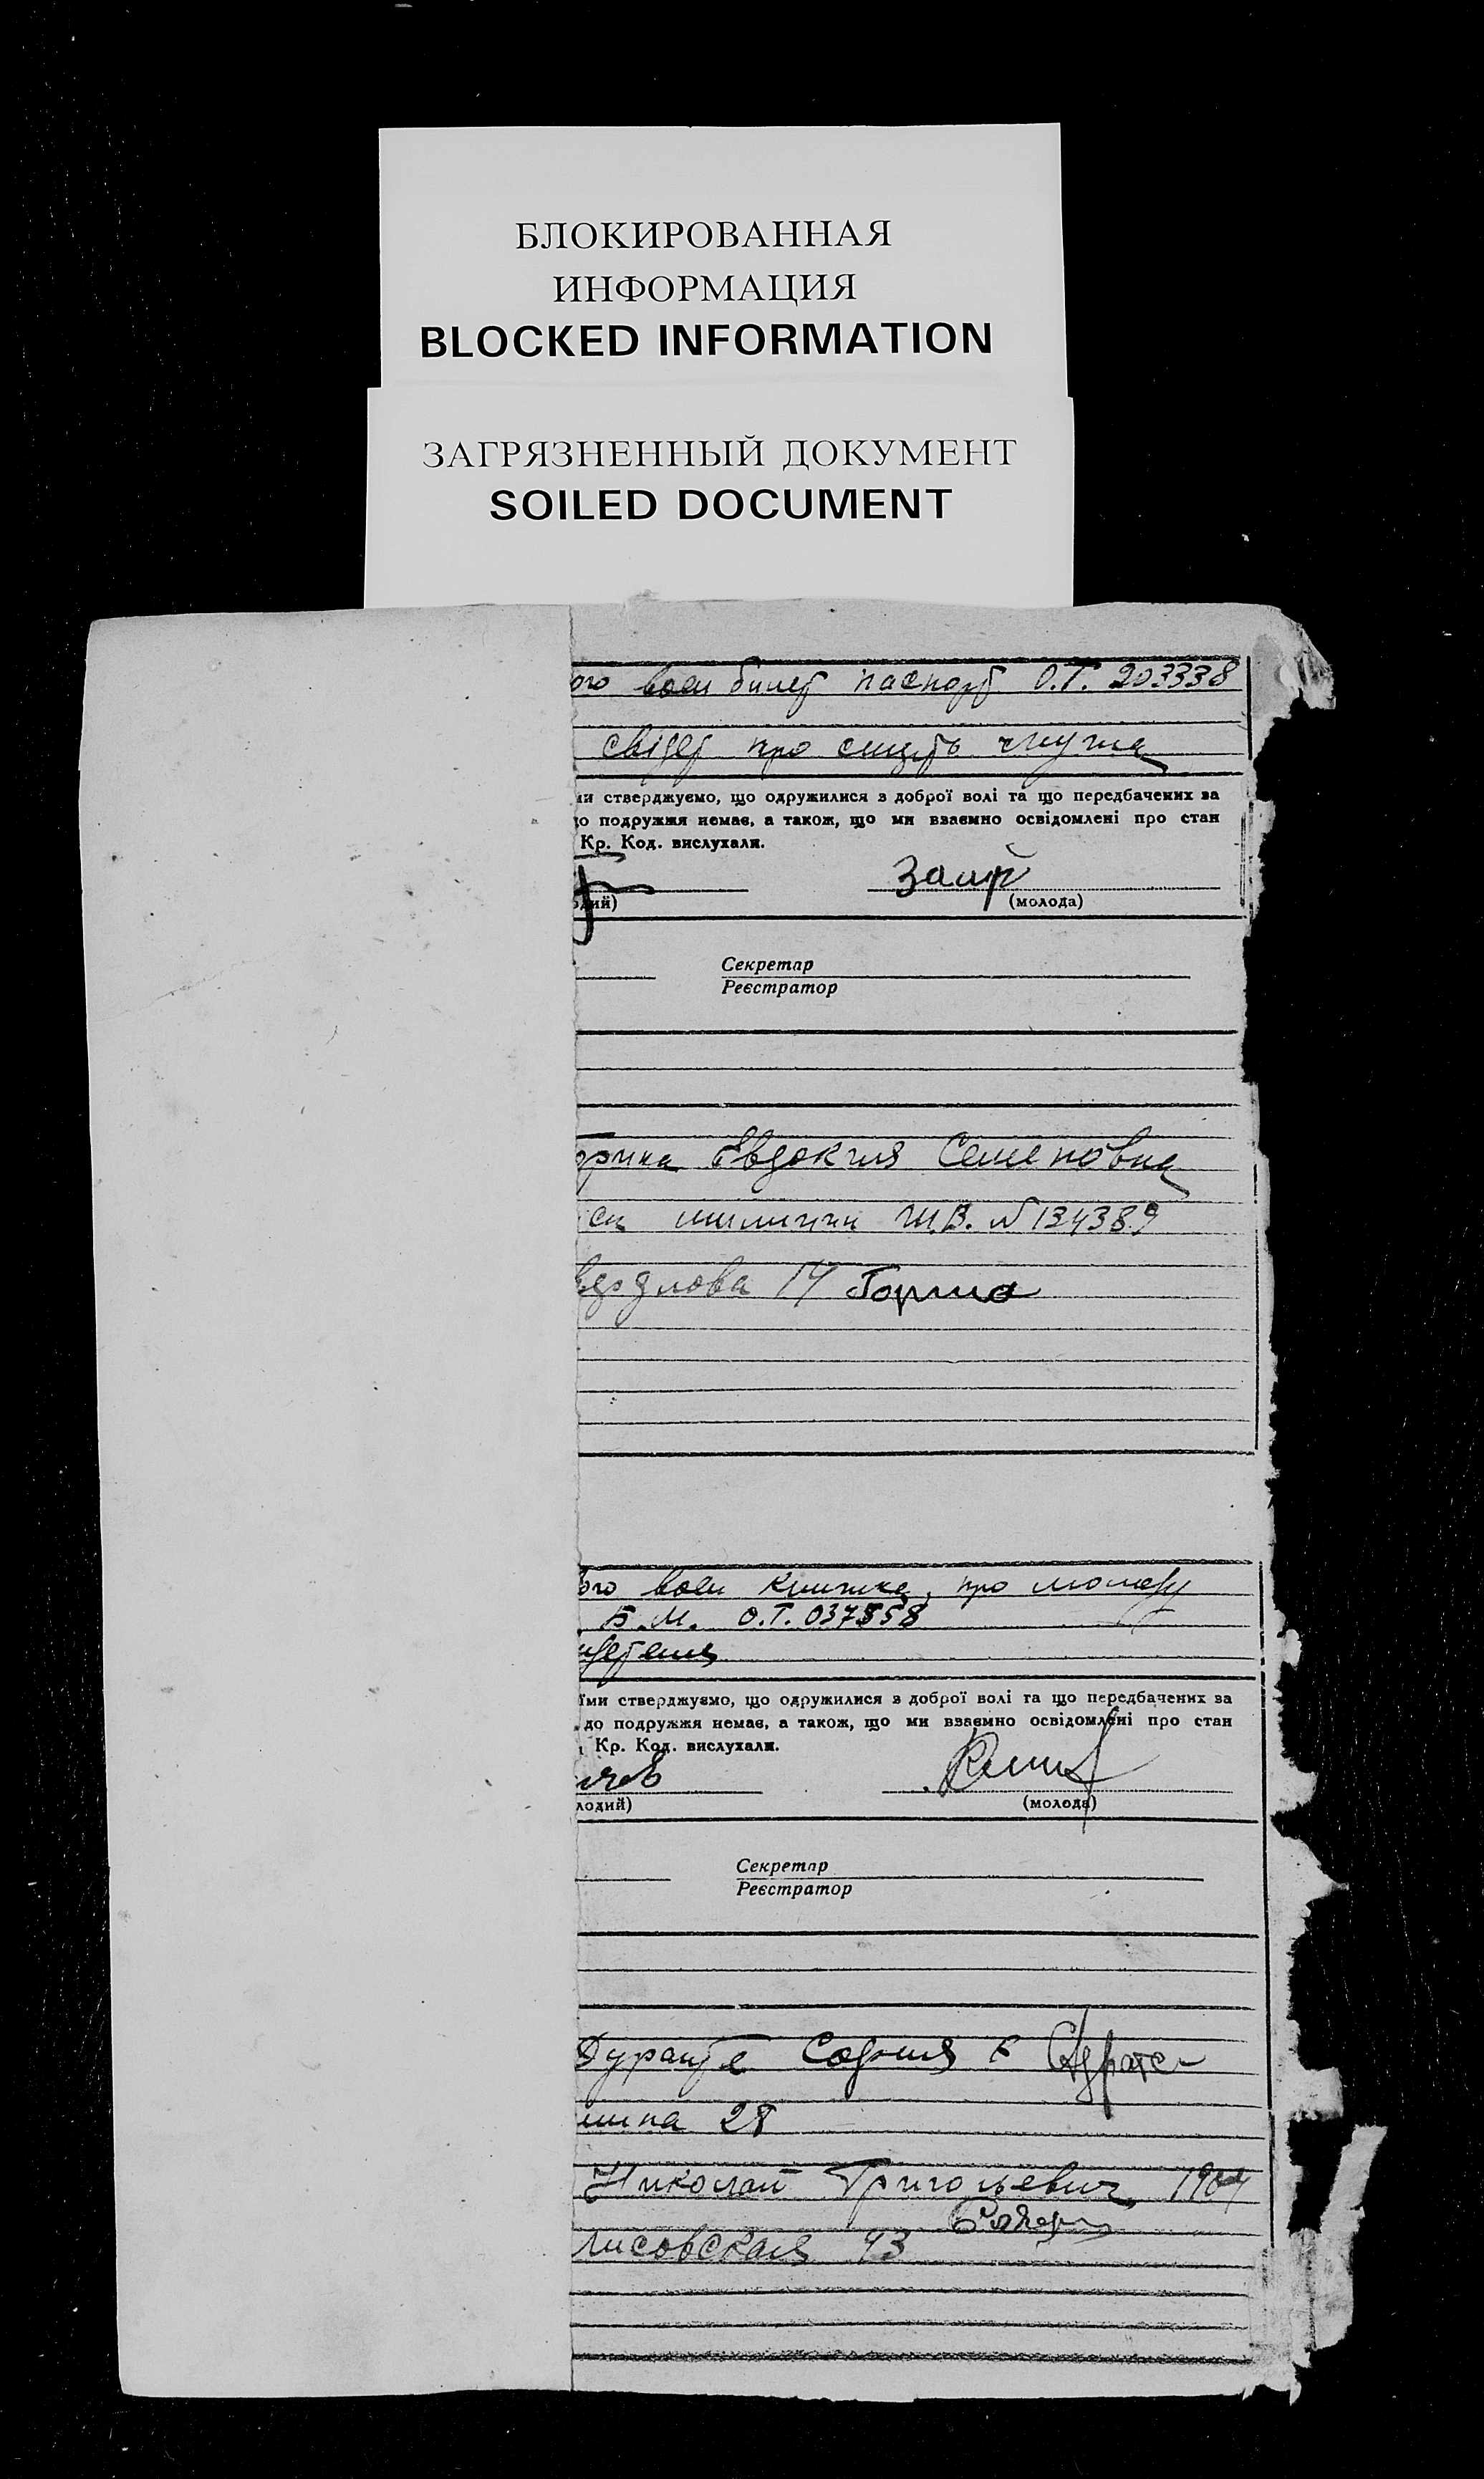 БЛОКИРОВАННАЯ
ИНФОРМАЦИЯ
BLOCKED INFORMATION
ЗАГРЯЗНЕННЫЙ ДОКУМЕНТ
SOILED DOCUMENT
ого воен билет паспорт О.Т. 203338
свідет про смерть чнужа
ми стверджуємо, що одружилися з доброї волі та що передбачених за
до подружжя немає, а також, що ми взаємно освідомлені про стан
Кр. Код. вислухали.
одий) (молода)
Секретар
Реєстратор
Евдокия Семеновна
милиции Ш.В. № 134389
14
ого воен книжка, про молоду
Б.М. О.Т. 037558
їми стверджуємо, що одружилися з доброї волі та що передбачених за
до подружжя немає, а також, що ми взаємно освідомлені про стан
Кр. Код. вислухали.
лодий) (молода)
Секретар
Реєстратор
София
28
Николай Григорьевич 1904
лисовская 43